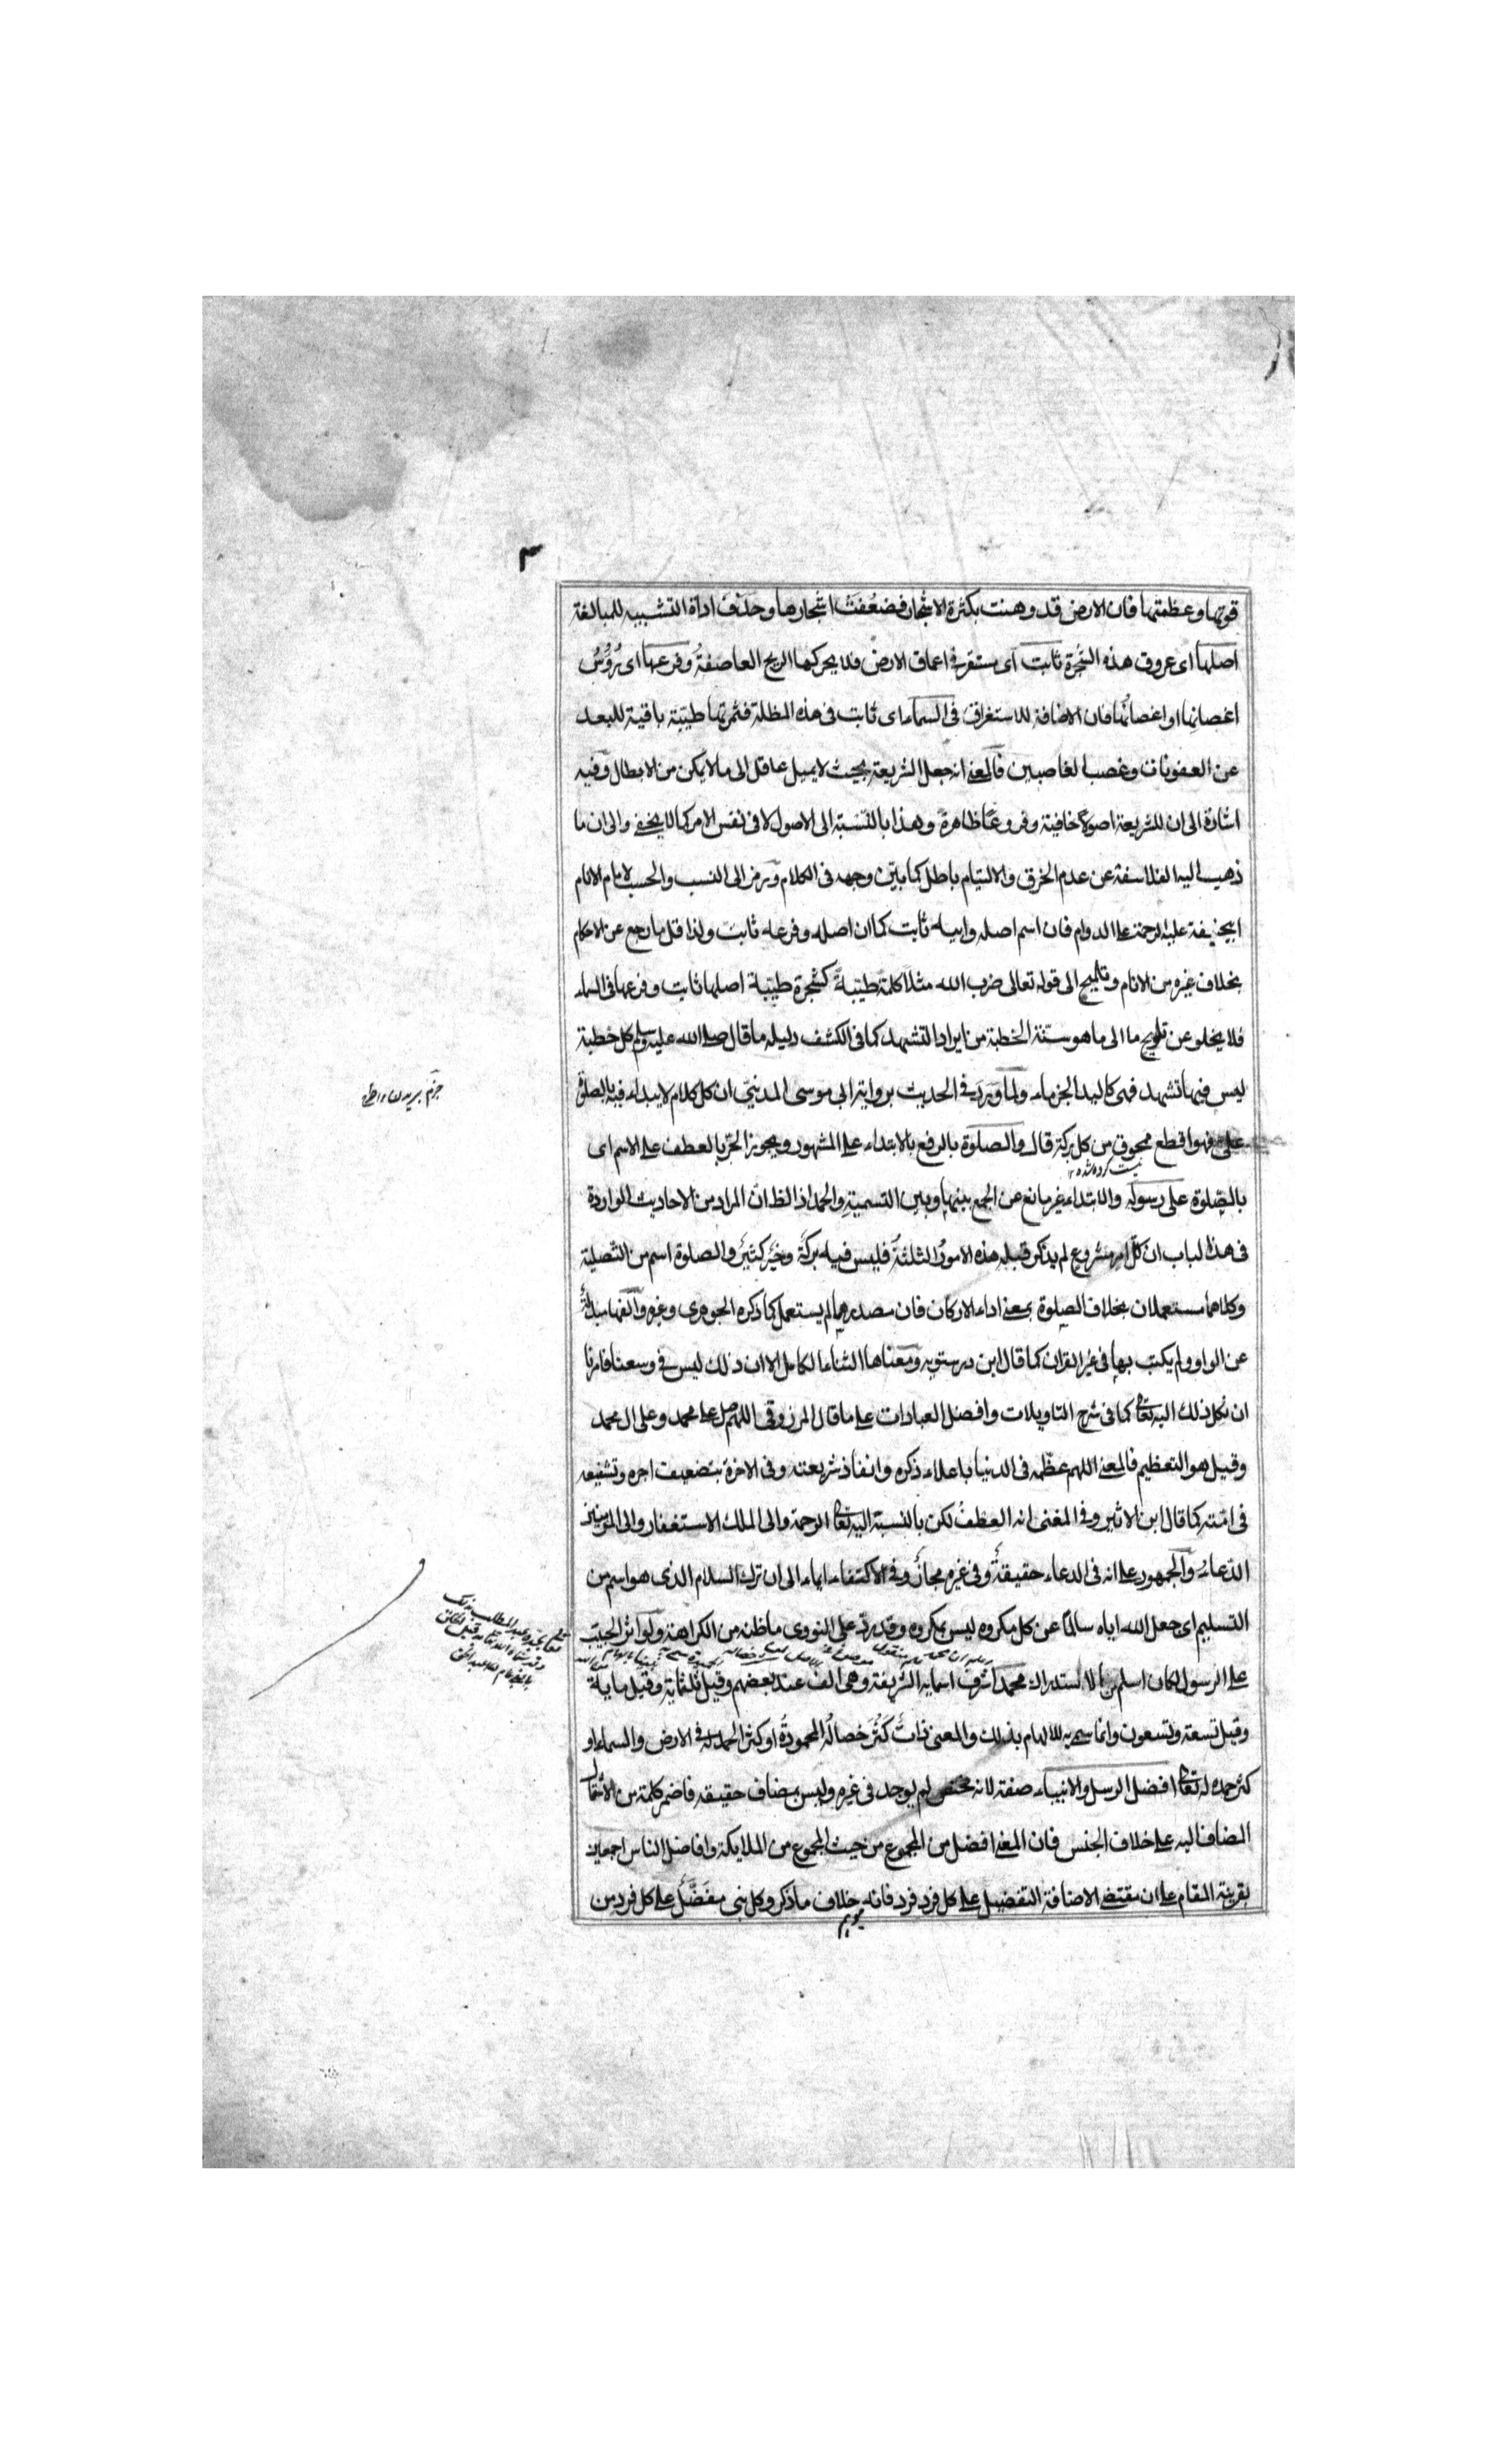 ٣
قوتها وعظمتها فان الارض قد وهنت بكثرة الاشجار فضعُفَتْ اشجارها وحذف اداة التشبيه للمبالغة
اصلها اى عروق هذه الشجرة ثابت اى مستقر فى اعماق الارض فلا يحركها الريح العاصفة وفرعها اى رُؤسُ
اغصانِها او اغصانُها فان الاضافة للاستغراق فى السماء اى ثابت فى هذه المظلة فثمرتها طيّبة باقية للبعد
عن العفونات وغصب الغاصبين فالمعنى انه جعل الشريعة بحيث لا يميل عاقل الى ما لا يمكن من الابطال وفيه
اشارة الى ان للشريعة اصولا خافية وفروعًا ظاهرة وهذا بالنّسبة الى الاصول لا فى نفس الامر كما لا يخفى والى ان ما
ذهب اليه الفلاسفة عن عدم الخرق والالتيام باطل كما بيّن وجهه فى الكلام ورمز الى النسب والحسب لامام الانام
ابيحنيفة عليه الرحمة على الدوام فان اسم اصله وابيه ثابت كما ان اصله وفرعه ثابت ولذا قل ما رجع عن الاحكام
بخلاف غيره من الانام وتلميح الى قوله تعالى ضرب الله مثلًا كلمةً طيّبةً كشجرة طيّبة اصلها ثابت وفرعها فى السماء
فلا يخلو عن تلويح ما الى ما هو سنّة الخطبة من ايراد التشهد كما فى الكشف دليله ما قال صلى الله عليه وسلم كل خطبة
ليس فيها تشهد فهى كاليد الجذماء ولما ورد فى الحديث برواية ابى موسى المدينىّ ان كل كلام لا يبداء فيه بالصلوة
علىّ فهو اقطع ممحوق من كل بركة قال والصلوة بالرفع بالابتداء على المشهور ويجوز الجرّ بالعطف على الاسم اى
بالصلوة على رسوله والابتداء غير مانع عن الجمع بينها وبين التسمية والحمد اذ الظ انّ المراد من الاحاديث الواردة
فى هذا الباب ان كلّ امر مشروع لم يذكر قبله هذه الامور الثلثة فليس فيه بركة وخير كثير والصلوة اسم من التصلية
وكلاهما مستعملان بخلاف الصلوة بمعنى اداء الاركان فان مصدرهما لم يستعمل كما ذكره الجوهرى وغيره والفها مبدلة
عن الواو ولم يكتب بها فى غير القران كما قال ابن درستويه ومعناها الثناء الكامل الا ان ذلك ليس فى وسعنا فامرنا
ان نكل ذلك اليه تعالى كما فى شرح التاويلات وافضل العبادات على ما قال المرزوقى اللهم صل على محمد وعلى ال محمد
وقيل هو التعظيم فالمعنى اللهم عظّمه فى الدنيا باعلاء ذكره وانفاذ شريعته وفى الاخرة بتضعيف اجره وتشفيعه
فى امّته كما قال ابن الاثير وفى المغنى انه العطف لكن بالنسبة اليه تعالى الرحمة والى الملك الاستغفار والى المؤمنين
الدّعاء والجمهور على انه فى الدعاء حقيقة وفى غيره مجاز وفى الاكتفاء ايماء الى ان ترك السلام الذى هو اسم من
التسليم اى جعل الله اياه سالمًا عن كل مكروه ليس بمكروه وقد ردّ على النووى ما ظن من الكراهة ولو اثر الحبيب
على الرسول لكان اسلم من الاستدراك محمد اشرف اسمايه الشريفة وهى الف عند بعضهم وقيل ثلثماية وقيل ماية
وقيل تسعة وتسعون وانما سمى به للالهام بذلك والمعنى ذاتٌ كثُرَ خصالُه المحمودةُ او كثر الحمد له فى الارض والسماء او
كثر حمده له تعالى افضل الرسل والانبياء صفته لانه مختص لم يوجد فى غيره وليس بمضاف حقيقة فاضمر كلمة من لانتقال
المضاف اليه على خلاف الجنس فان المعنى افضل من المجموع من حيث المجموع من الملايكة وافاضل الناس اجمعين
بقرينة المقام على ان مقتضى الاضافة التفضيل على كل فرد فرد فانه خلاف ما ذكر وكل نبى مفَضَّلٌ على كل فرد من